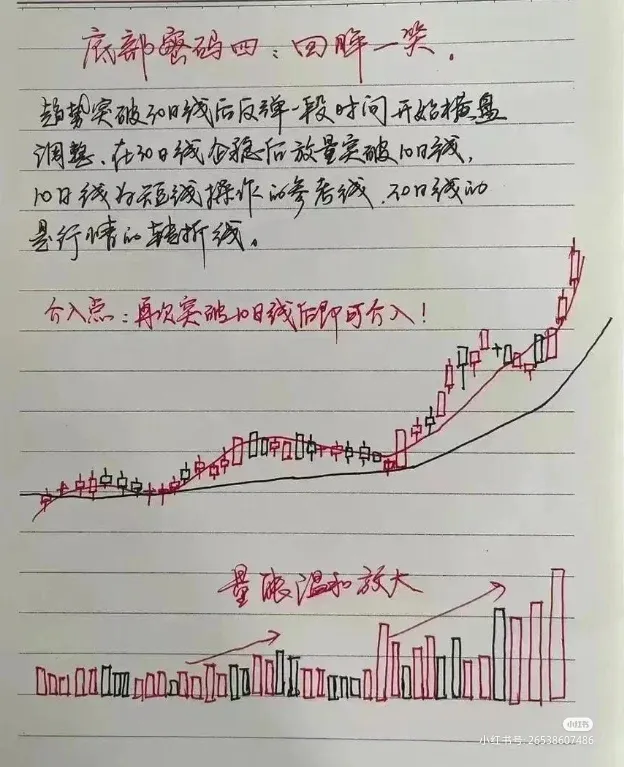 底部密码四：回眸一笑.
趋势突破30日线后反弹一段时间开始横盘
调整、在30日线企稳后放量突破10日线，
10日线为短线操作的参考线、30日线的
是行情的转折线。
介入点：再次突破10日线后即可介入！
量能温和放大
小红书
小红书号 26538607486